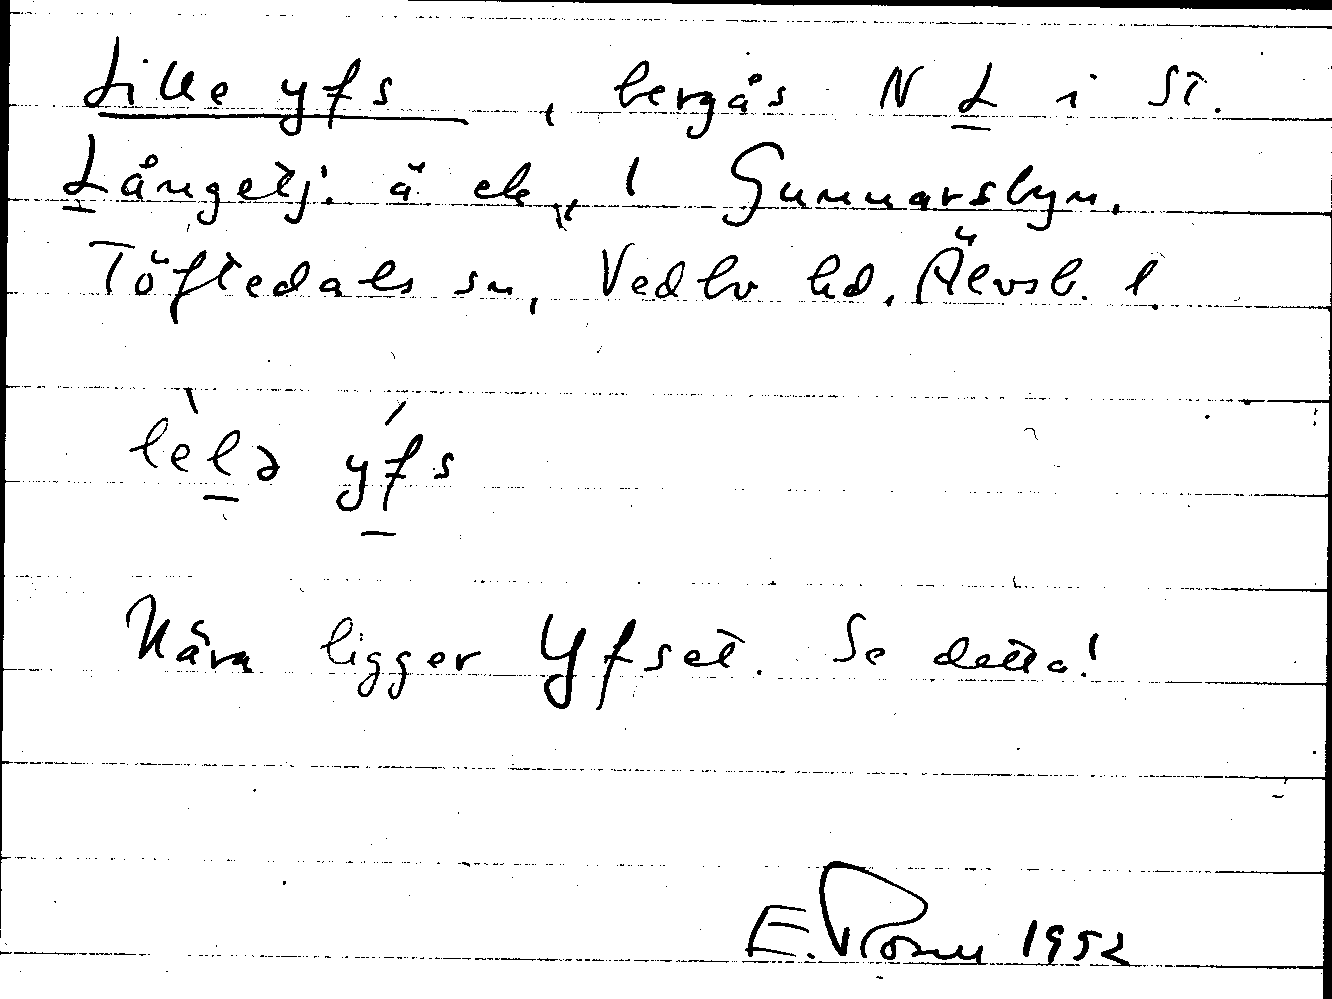 Lille yfs, bergås N L i St.
Långetj. å ek. 1 Gunnarsbyn.
Töftedals sn, Vedbo hd. Älvsb. l.
lèlə yfs
Nära ligger Yfset. Se detta!
E. Rosell 1952